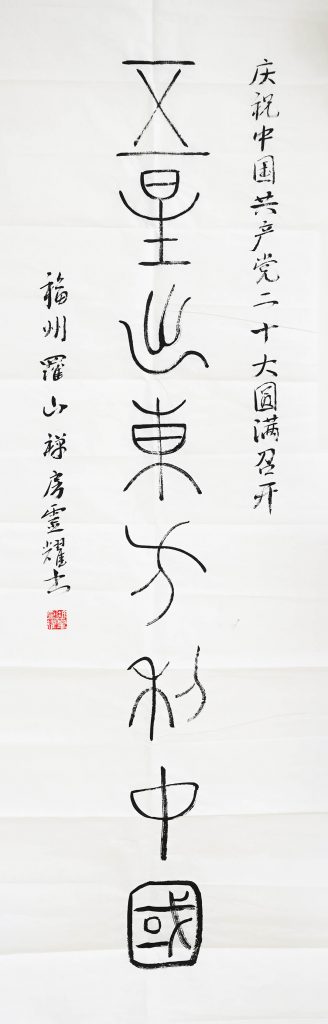 庆祝中国共产党二十大圆满召开
五星出東方利中國
福州羅山禅房靈耀書